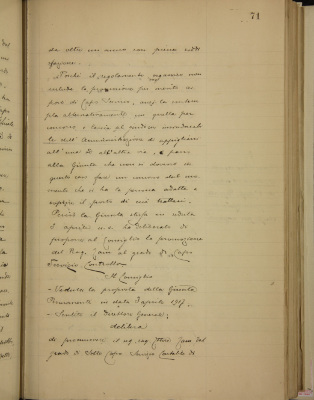 71
da oltre un anno con piena soddi
sfazione.
Poiché il regolamento organico non
esclude la promozione per merito ai
posti di Capo Servizio, anzi la contem
pla alternativamente in quella per
concorso e lascia al giudizio
dell'Amministrazione di appigliarsi
all'una o all'altra via, è parso
alla Giunta che non si dovesse in
questo caso fare un concorso dal mo
mento che si ha la persona adatta a
coprire il posto di cui trattasi.
Perciò la Giunta stessa in seduta
3 aprile u.s. ha deliberato di
proporre al Consiglio la promozione
del Rag. al grado di Capo
Servizio Controllo.
Il Consiglio
- Veduta la proposta della Giunta
Permanente in data 3 aprile 1907.
- Sentito il Direttore Generale;
delibera
di promuovere il sig. rag. dal
grado di Sotto Capo Servizio Contabile di